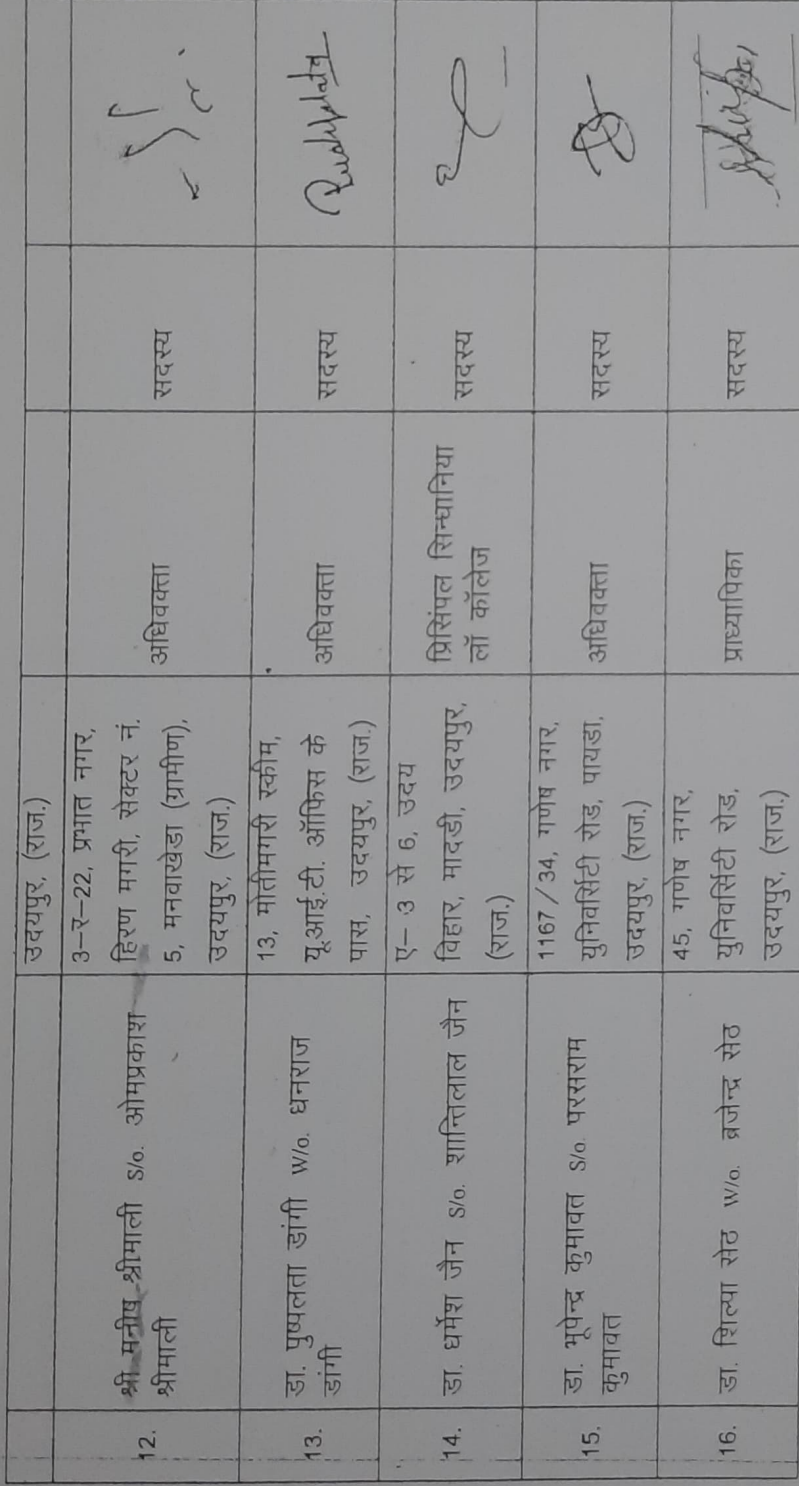 उदयपुर, (राज.)
12.
श्री मनीष श्रीमाली S/o. ओमप्रकाश
श्रीमाली
3-र-22, प्रभात नगर,
हिरण मगरी, सेक्टर नं.
5, मनवाखेडा (ग्रामीण),
उदयपुर, (राज.)
अधिवक्ता
सदस्य
13.
डा. पुष्पलता डांगी W/o. धनराज
डांगी
13, मोतीमगरी स्कीम,
यू.आई.टी. ऑफिस के
पास, उदयपुर, (राज.)
अधिवक्ता
सदस्य
Pushplata
14.
डा. धर्मेश जैन S/o. शान्तिलाल जैन
ए- 3 से 6, उदय
विहार, मादडी, उदयपुर,
(राज.)
प्रिसिंपल सिन्धानिया
लॉ कॉलेज
सदस्य
15.
डा. भूपेन्द्र कुमावत S/o. परसराम
कुमावत
1167/34, गणेष नगर,
युनिवर्सिटी रोड, पायडा,
उदयपुर, (राज.)
अधिवक्ता
सदस्य
16.
डा. शिल्पा सेठ W/o. ब्रजेन्द्र सेठ
45, गणेष नगर,
युनिवर्सिटी रोड,
उदयपुर, (राज.)
प्राध्यापिका
सदस्य